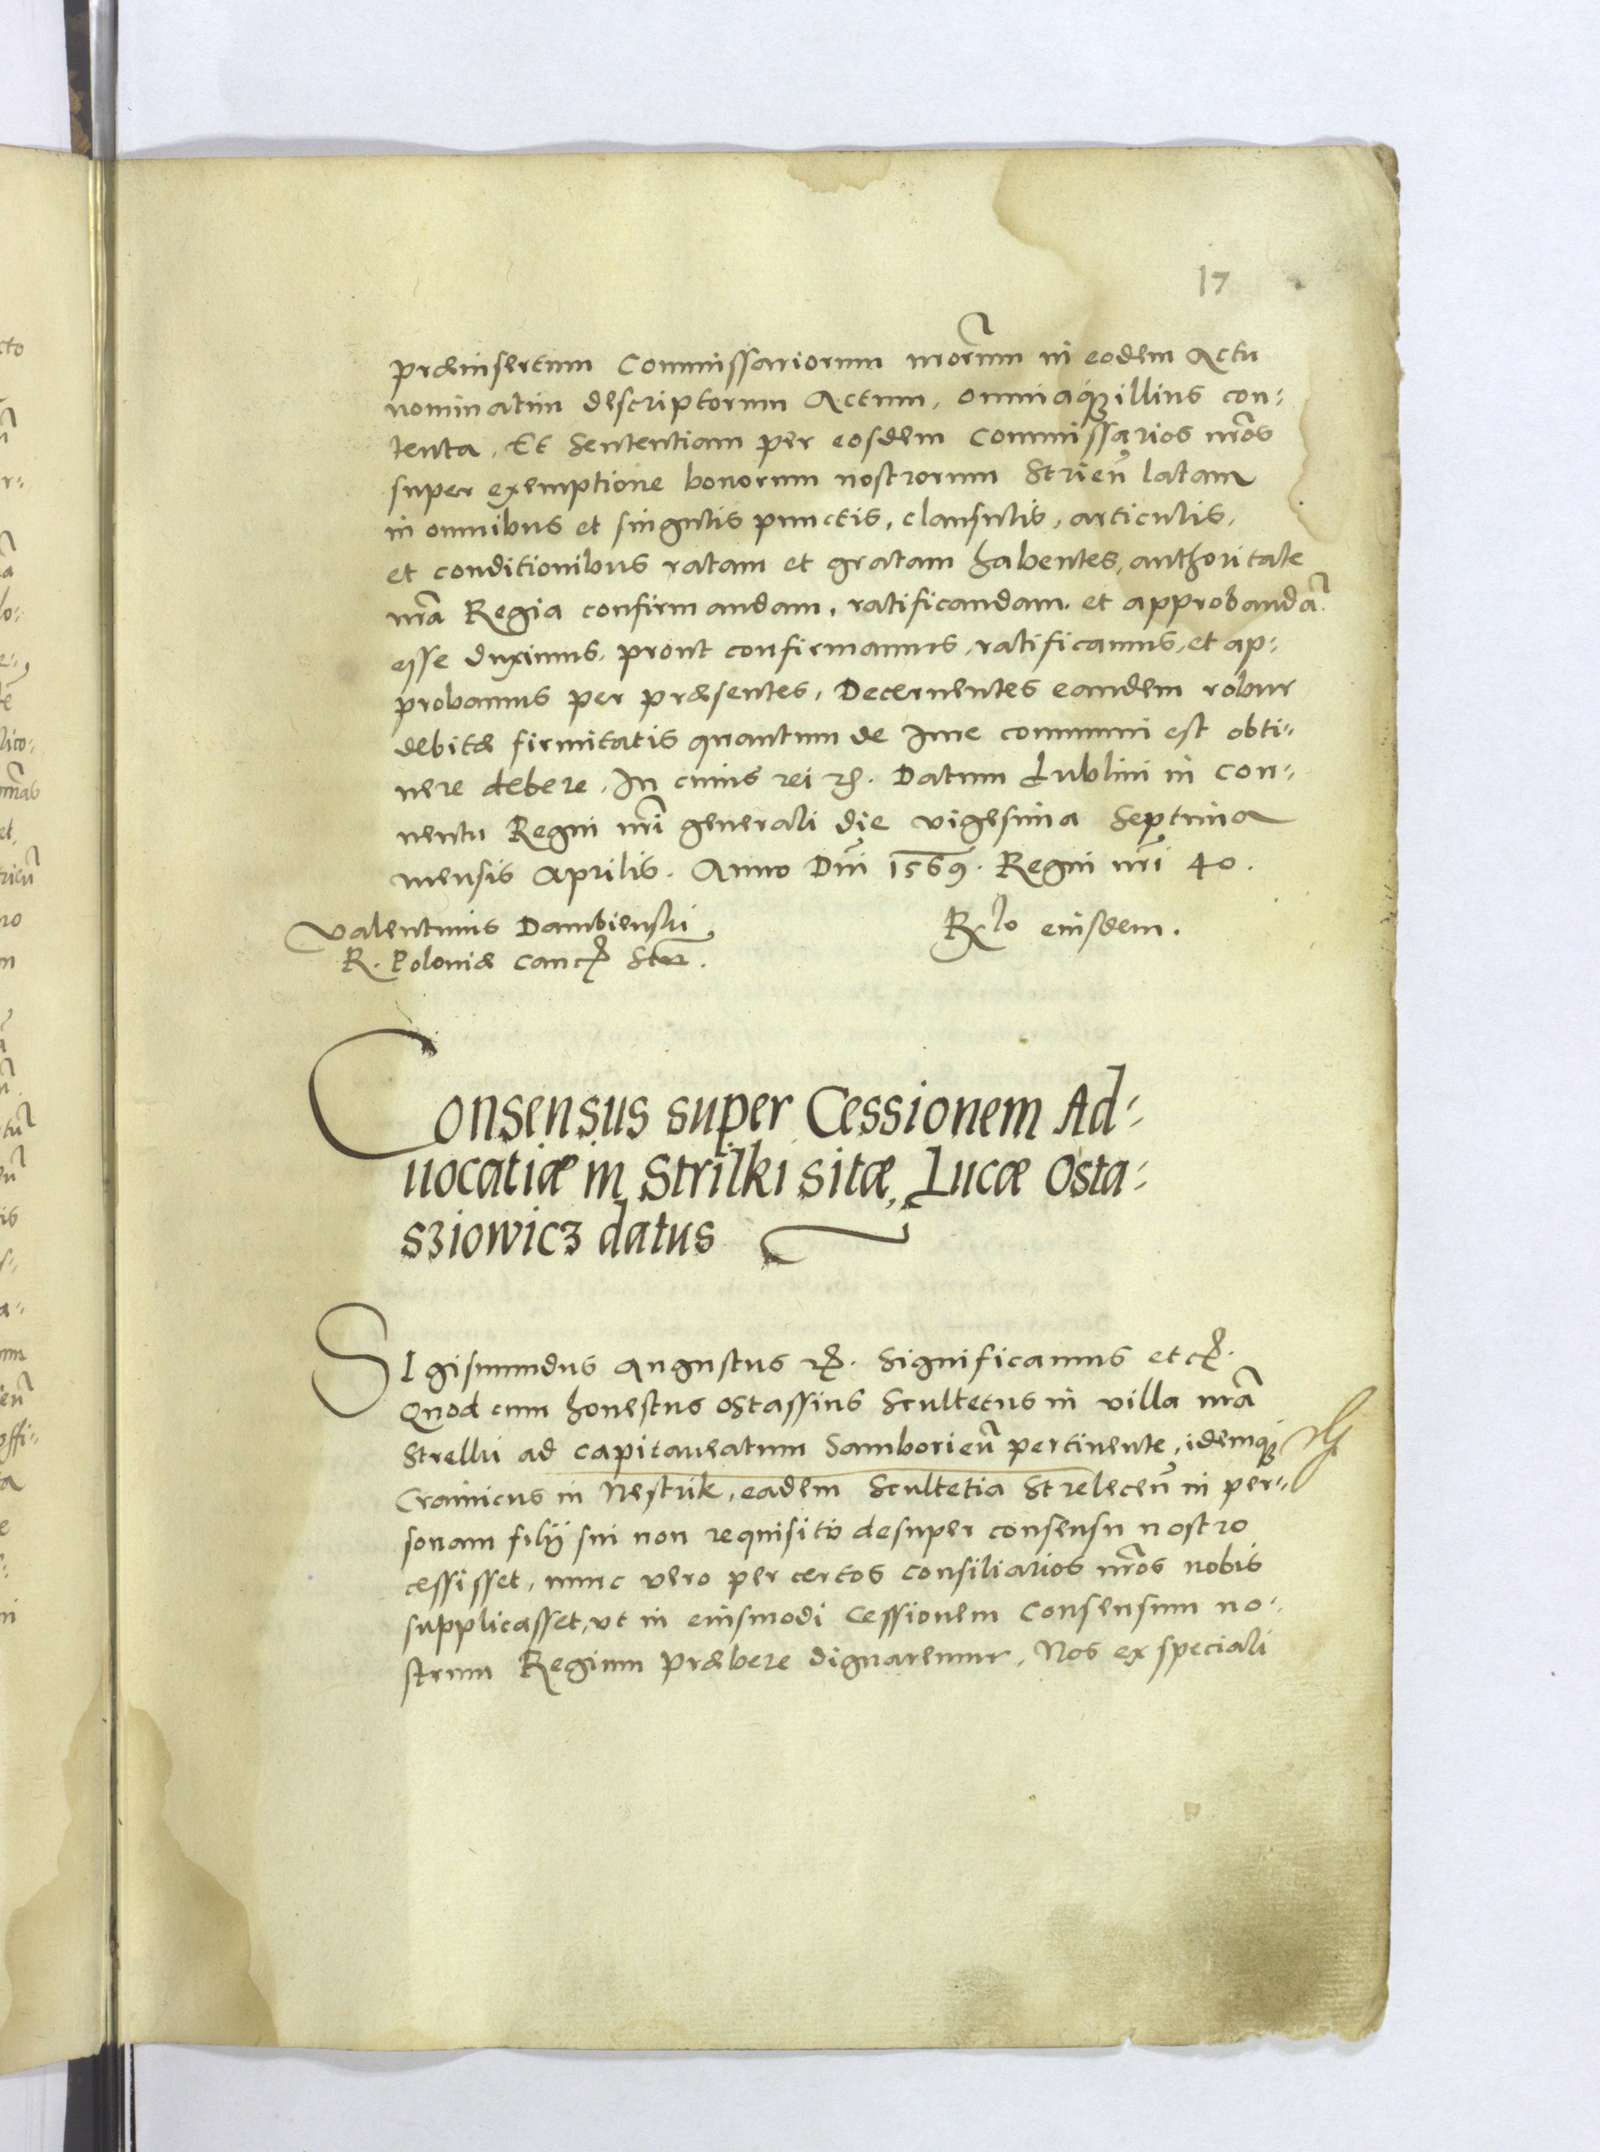 17
præinsertum Commissariorum nrorum in eodem Actu
nominatim descriptorum Actum, omniaqꝫ illius con-
tenta. Et Sententiam per eosdem Commissarios nros
super exemptione bonorum nostrorum Strień latam
in omnibus et singulis punctis, clausulis, articulis,
et conditionibus ratam et gratam habentes, authoritate
nrã Regia confirmandam, ratificandam. et approbandã.
esse duximus. prout confirmamus, ratificamus, et ap-
probamus per præsentes, Decernentes eandem robur
debitæ firmitatis quantum de Iure communi est obti-
nere debere. In cuius rei etc. Datum Lublini in con-
uentu Regni nri generali die vigesima Septima
mensis Aprilis. Anno Dni 1569. Regni nri 40.
Valentinus Dambienski
R. Poloniæ Canc.
Rlo eiusdem.
Consensus super Cessionem Ad-
uocatiæ in Strilki sitæ, Lucæ Osta-
sziowicz datus
SIgismundus Augustus etc. Significamus etc.
Quod cum honestus Ostassius Scultetus in villa nrã
Strelki ad capitaneatum Samborień pertinente, idemqꝫ
Crainicus in Nestrik, eadem Scultetia Streleceń in per-
sonam filij sui non requisito desuper consensu nostro
cessisset, nunc vero per certos consiliarios nros nobis
supplicasset, vt in eiusmodi Cessionem Consensum no-
strum Regium præbere dignaremur, Nos ex speciali